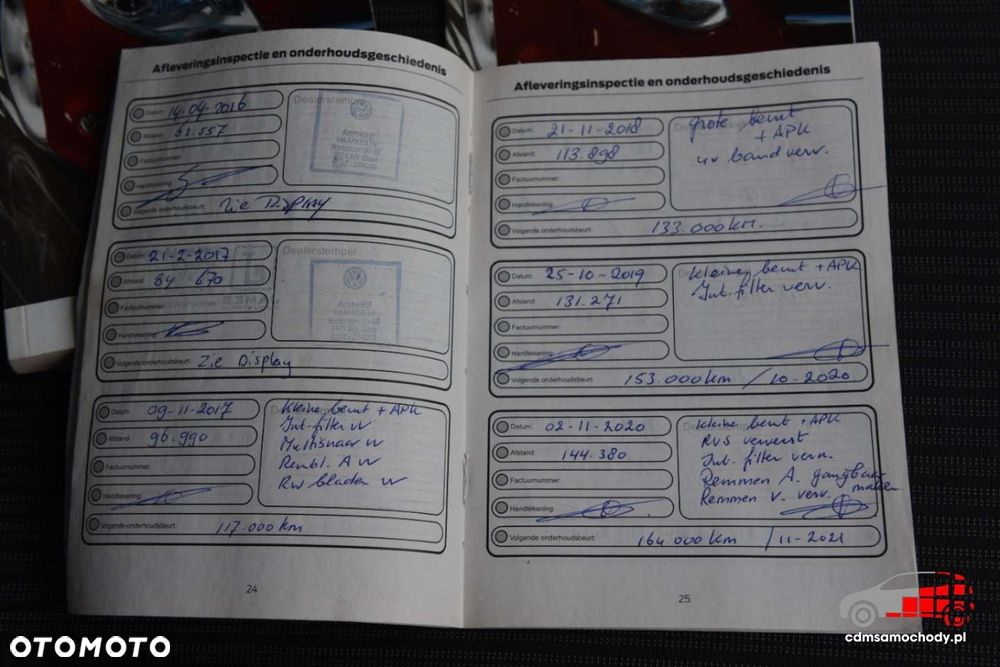 Afleveringsinspectie en onderhoudsgeschiedenis
Datum: 14-04-2016
Dealerstempel
Afstand: 62.557
Factuurnummer:
Handtekening:
Volgende onderhoudsbeurt: Zie Display
Datum: 21-2-2017
Dealerstempel
Afstand: 84 670
Factuurnummer:
Handtekening:
Volgende onderhoudsbeurt: Zie Display
Datum: 09-11-2017
Kleine beurt + APK
Afstand: 96.990
Int. filter vv
Multisnaar vv
Factuurnummer:
Rembl. A vv
Handtekening:
RW bladen vv
Volgende onderhoudsbeurt: 117.000 km
24
Afleveringsinspectie en onderhoudsgeschiedenis
Datum: 21-11-2018
grote beurt
+ APK
Afstand: 113.898
4x band verv.
Factuurnummer:
Handtekening:
Volgende onderhoudsbeurt: 133.000km.
Datum: 25-10-2019
Kleine beurt + APK
Int. filter verv.
Afstand: 131.271
Factuurnummer:
Handtekening:
Volgende onderhoudsbeurt: 153.000km / 10-2020
Datum: 02-11-2020
Kleine beurt + APK
RVS ververst
Afstand: 144.380
Int. filter verv.
Factuurnummer:
Remmen A. gangbaar maken
Handtekening:
Remmen v. verv.
Volgende onderhoudsbeurt: 164.000km / 11-2021
25
OTOMOTO
cdmsamochody.pl